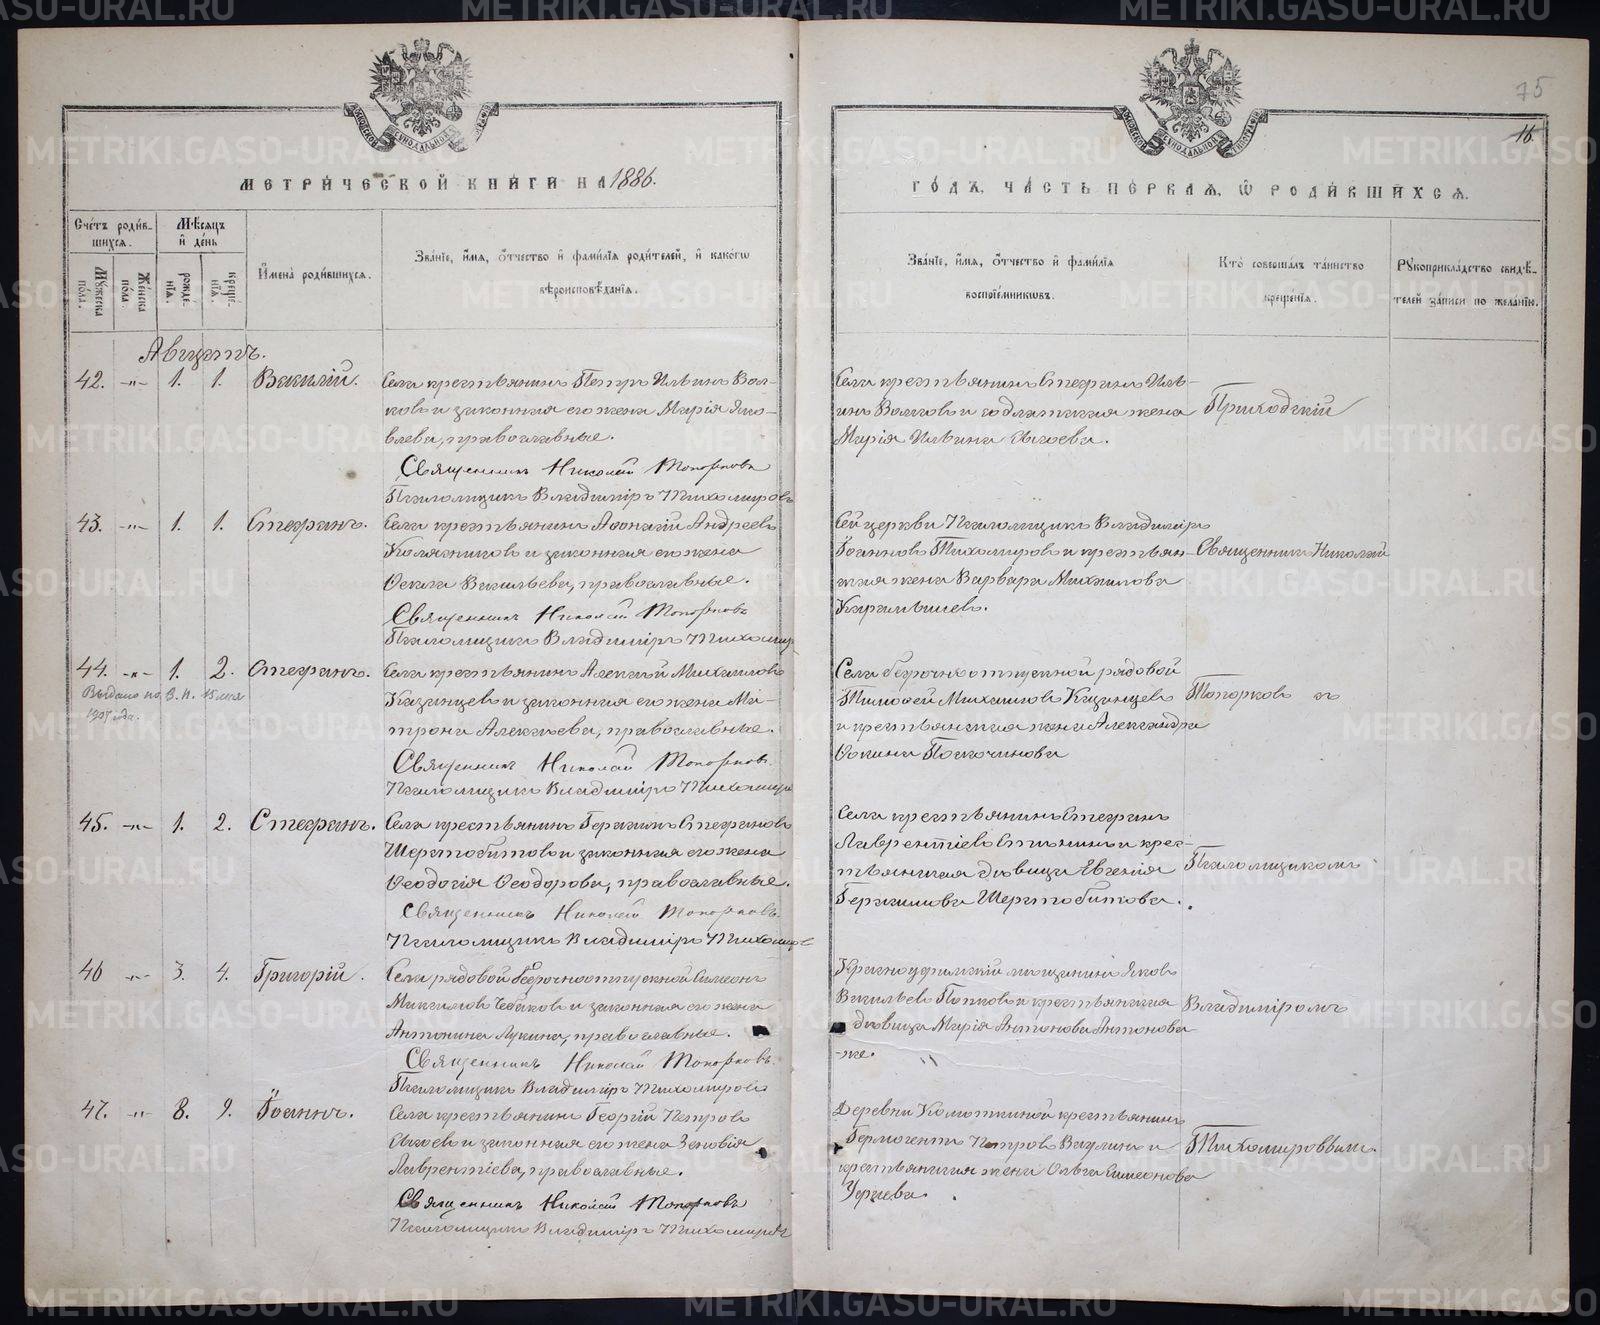 METRIKI.GASO-URAL.RU
75
16.
МЕТРИЧЕСКОЙ КНИГИ НА 1886.
ГОДЪ, ЧАСТЬ ПЕРВАЯ, Ѿ РОДИВШИХСЯ.
Счетъ родив-
шихся.
Мѣсяцъ
и день
Мужеска
пола.
Женска
пола.
рожде-
нія.
креще-
нія.
Имена родившихся.
Званіе, имя, ѻтчество и фамилія родителей, и какогѡ
вѣроисповѣданія.
Званіе, имя, ѻтчество и фамилія
воспріемникѡвъ.
Кто совершалъ таинство
крещенія.
Рукоприкладство свидѣ-
телей записи по желанію.
Августъ.
42. -"- 1. 1. Василій.
Села крестьянинъ Петръ Ильинъ Вол-
ковъ и законная его жена Марія Яко-
влева, православные.
Священникъ Николай Топорковъ
Псаломщикъ Владиміръ Тихомировъ
Села крестьянинъ Стефанъ Иль-
инъ Волковъ и солдатская жена
Марія Ильина
Приходскій
43. -"- 1. 1. Стефанъ.
Села крестьянинъ Аѳонасій Андреевъ
Колясниковъ и законная его жена
Ѳекла Васильева, православные.
Священникъ Николай Топорковъ
Псаломщикъ Владиміръ Тихомир
Сей церкви Псаломщикъ Владиміръ
Іоанновъ Тихомировъ и крестьян-
ская жена Варвара Михаилова
Священникъ Николай
44. -"- 1. 2. Стефанъ.
Выдано
1907 года.
Села крестьянинъ Алексѣй Михаиловъ
Казанцевъ и законная его жена Ма-
трона Алексѣева, православные.
Священникъ Николай Топорковъ.
Псаломщикъ Владиміръ Тихомиров
Села безсрочноотпускной рядовой
Тимоѳей Михаиловъ Казанцевъ
и крестьянская жена Александра
Ѳокина
Топорковъ съ
45. -"- 1. 2. Стефанъ.
Села крестьянинъ Герасимъ Стефановъ
Шерстобитовъ и законная его жена
Ѳеодосія Ѳеодорова, православные.
Священникъ Николай Топорковъ.
Псаломщикъ Владиміръ Тихомиров
Села крестьянинъ Стефанъ
Лаврентіевъ и крес-
тьянская дѣвица Евгенія
Герасимова Шерстобитова.
Псаломщикомъ
46 -"- 3. 4. Григорій.
Села рядовой безсрочноотпускной Симеонъ
Максимовъ Чебыковъ и законная его жена
Антонина Лукина, православные.
Священникъ Николай Топорковъ.
Псаломщикъ Владиміръ Тихомировъ
Красноуфимскій мѣщанинъ Яковъ
Васильевъ Попковъ и крестьянская
дѣвица Марія Антонова Антонова
-же.
Владиміромъ
47. -"- 8. 9. Іоаннъ.
Села крестьянинъ Георгій Петровъ
и законная его жена Зеновія
Лаврентіева, православные.
Священникъ Николай Топорковъ
Псаломщикъ Владиміръ Тихомировъ
Деревни крестьянинъ
Гермогенъ Петровъ и
крестьянская жена Ольга Симеонова
Тихомировымъ.